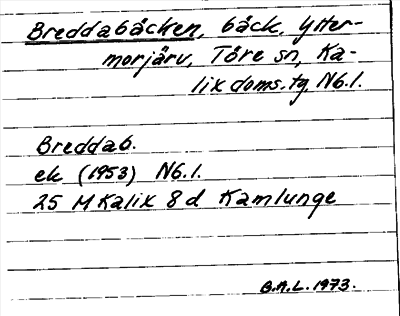 Breddabäcken, bäck, Ytter-
morjärv, Töre sn, Ka-
lix doms.tg Nb.l.
Breddab.
ek (1953) Nb.l.
25 M Kalix 8d Kamlunge
G.A.L. 1973.